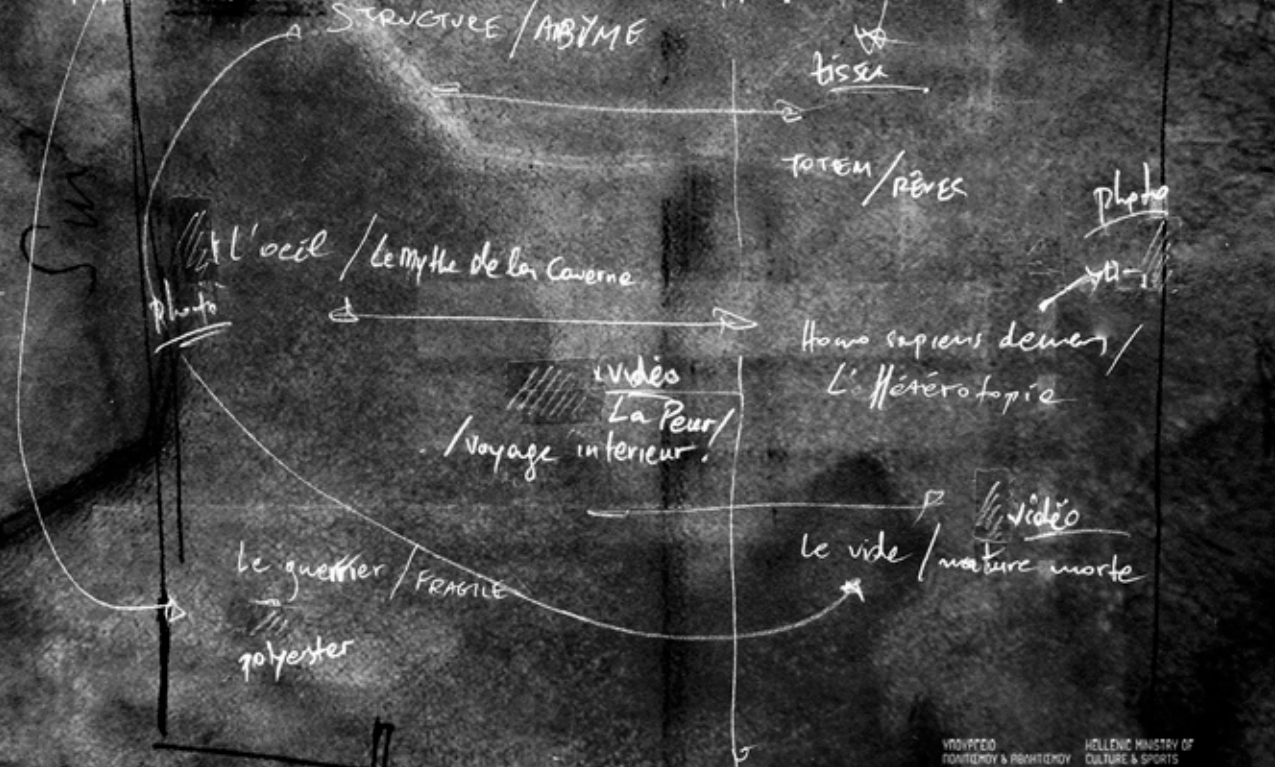 STRUCTURE / ABŸME
tisser
TOTEM / RÊVES
photo
L'oeil / Le Mythe de la Caverne
photo
Homo sapiens demens /
L'Hétérotopie
vidéo
La Peur /
/ voyage intérieur.
vidéo
Le vide / nature morte
Le guerrier / FRAGILE
polyester
ΥΠΟΥΡΓΕΙΟ
ΠΟΛΙΤΙΣΜΟΥ & ΑΘΛΗΤΙΣΜΟΥ
HELLENIC MINISTRY OF
CULTURE & SPORTS